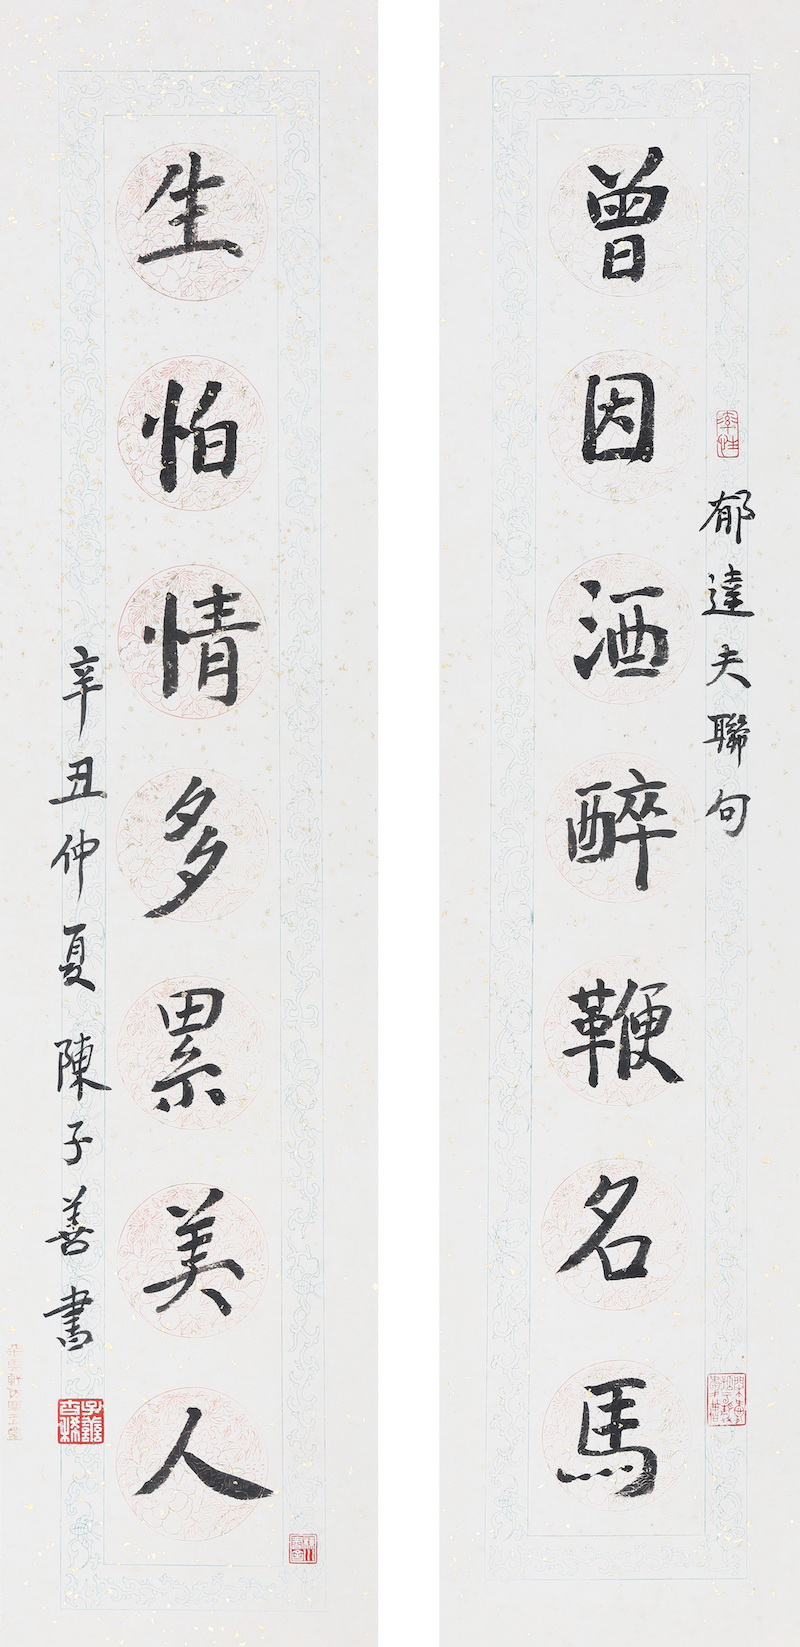 曾因酒醉鞭名馬
郁達夫聯句
率性
生怕情多累美人
辛丑仲夏陳子善書